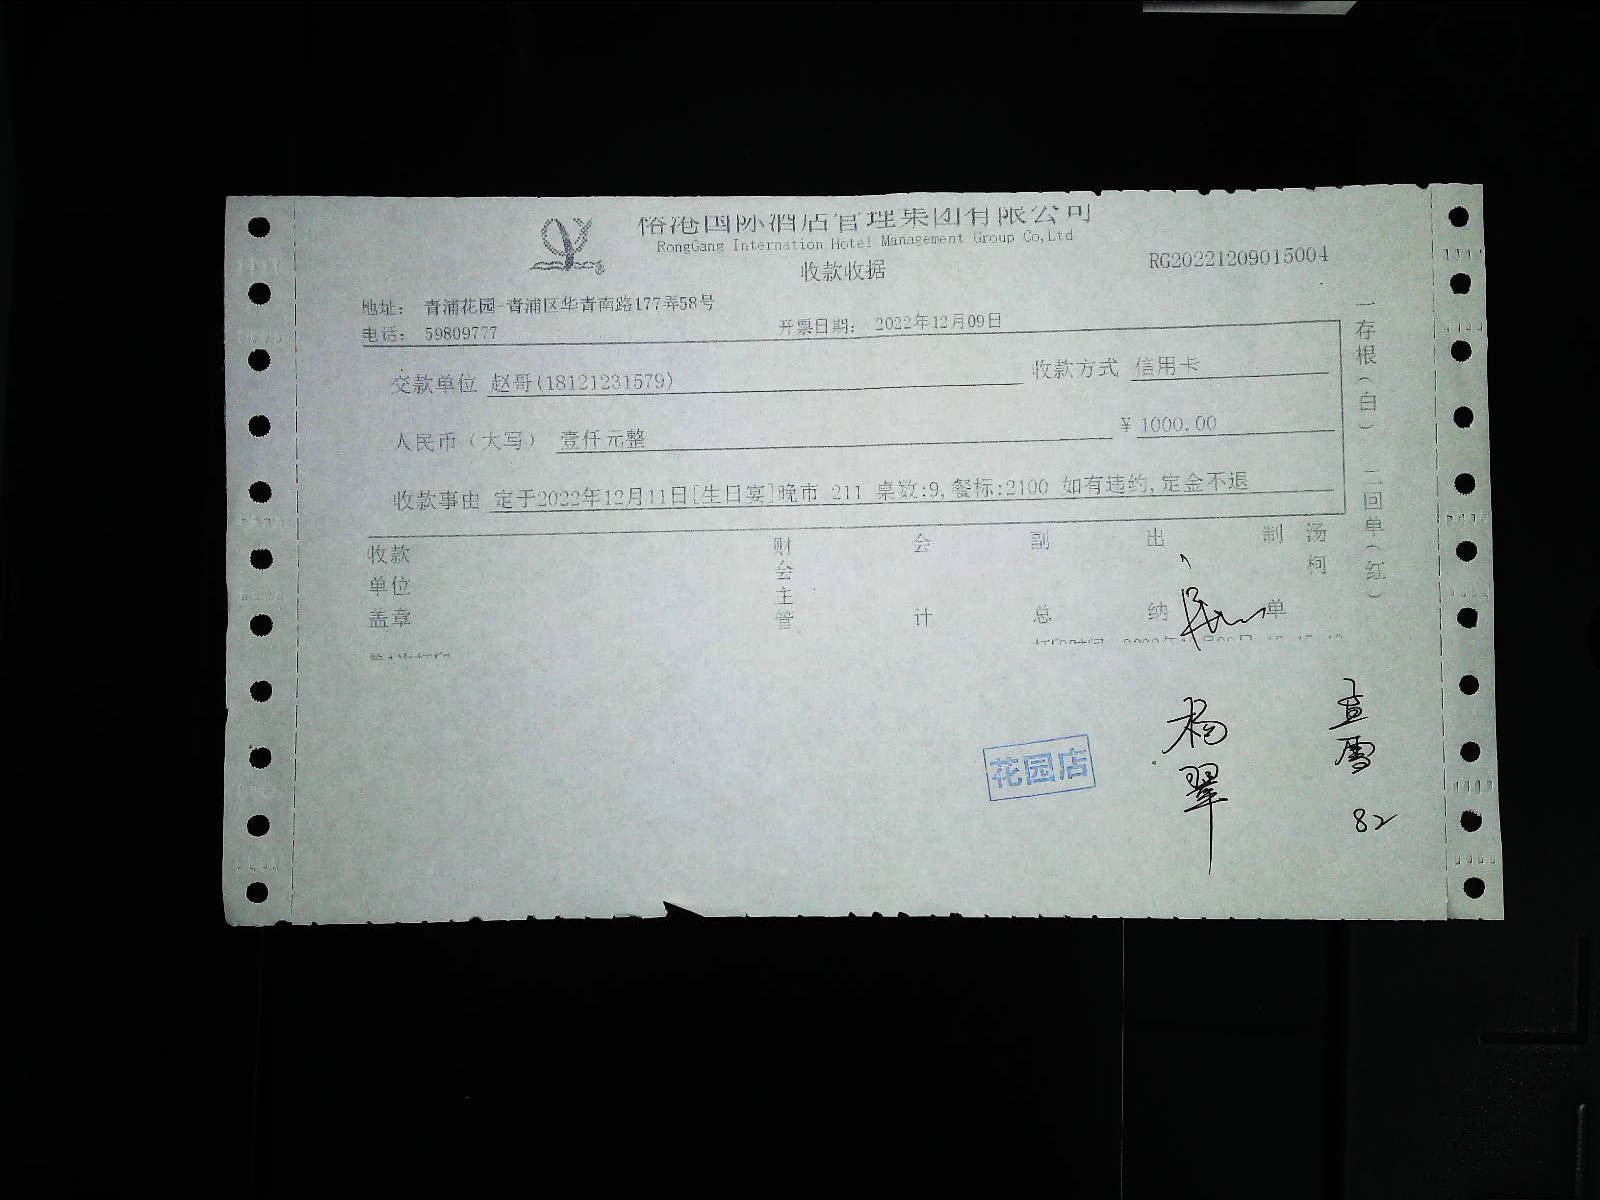 榕港国际酒店管理集团有限公司
RongGang Internation Hotel Management Group Co,Ltd
收款收据
RG20221209015004
地址： 青浦花园-青浦区华青南路177弄58号
电话： 59809777
开票日期： 2022年12月09日
交款单位 赵哥(18121231579)
收款方式 信用卡
人民币（大写） 壹仟元整
￥1000.00
收款事由 定于2022年12月11日[生日宴]晚市 211 桌数:9,餐标:2100 如有违约,定金不退
一存根（白） 二回单（红）
收款单位盖章
财会主管
会计
副总
出纳
制单
汤柯
花园店
杨翠
82